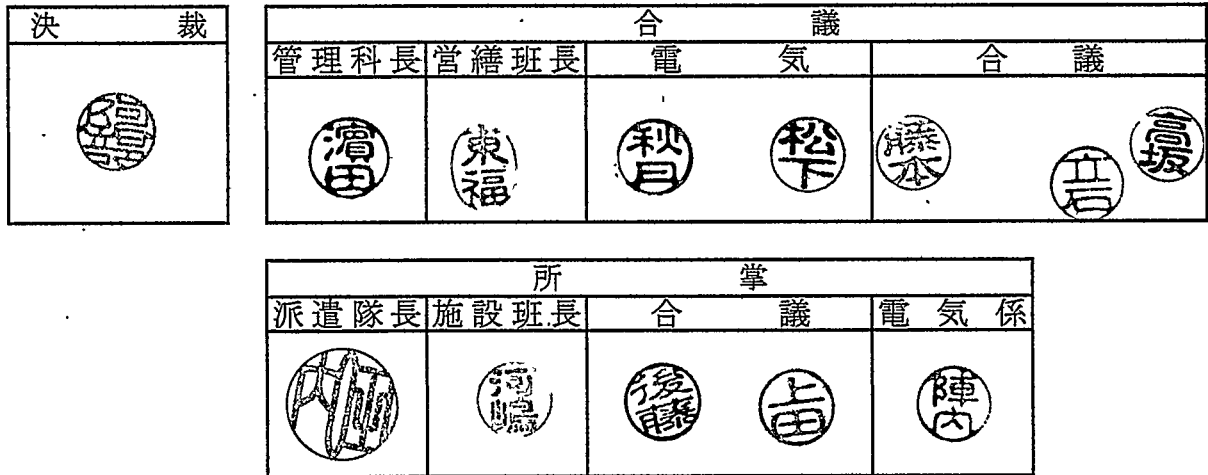 決裁
合議
管理科長 営繕班長 電気 合議
濱田 東福 秋月 松下 藤本 立石 高坂
所掌
派遣隊長 施設班長 合議 電気係
河嶋 後藤 上田 陣内